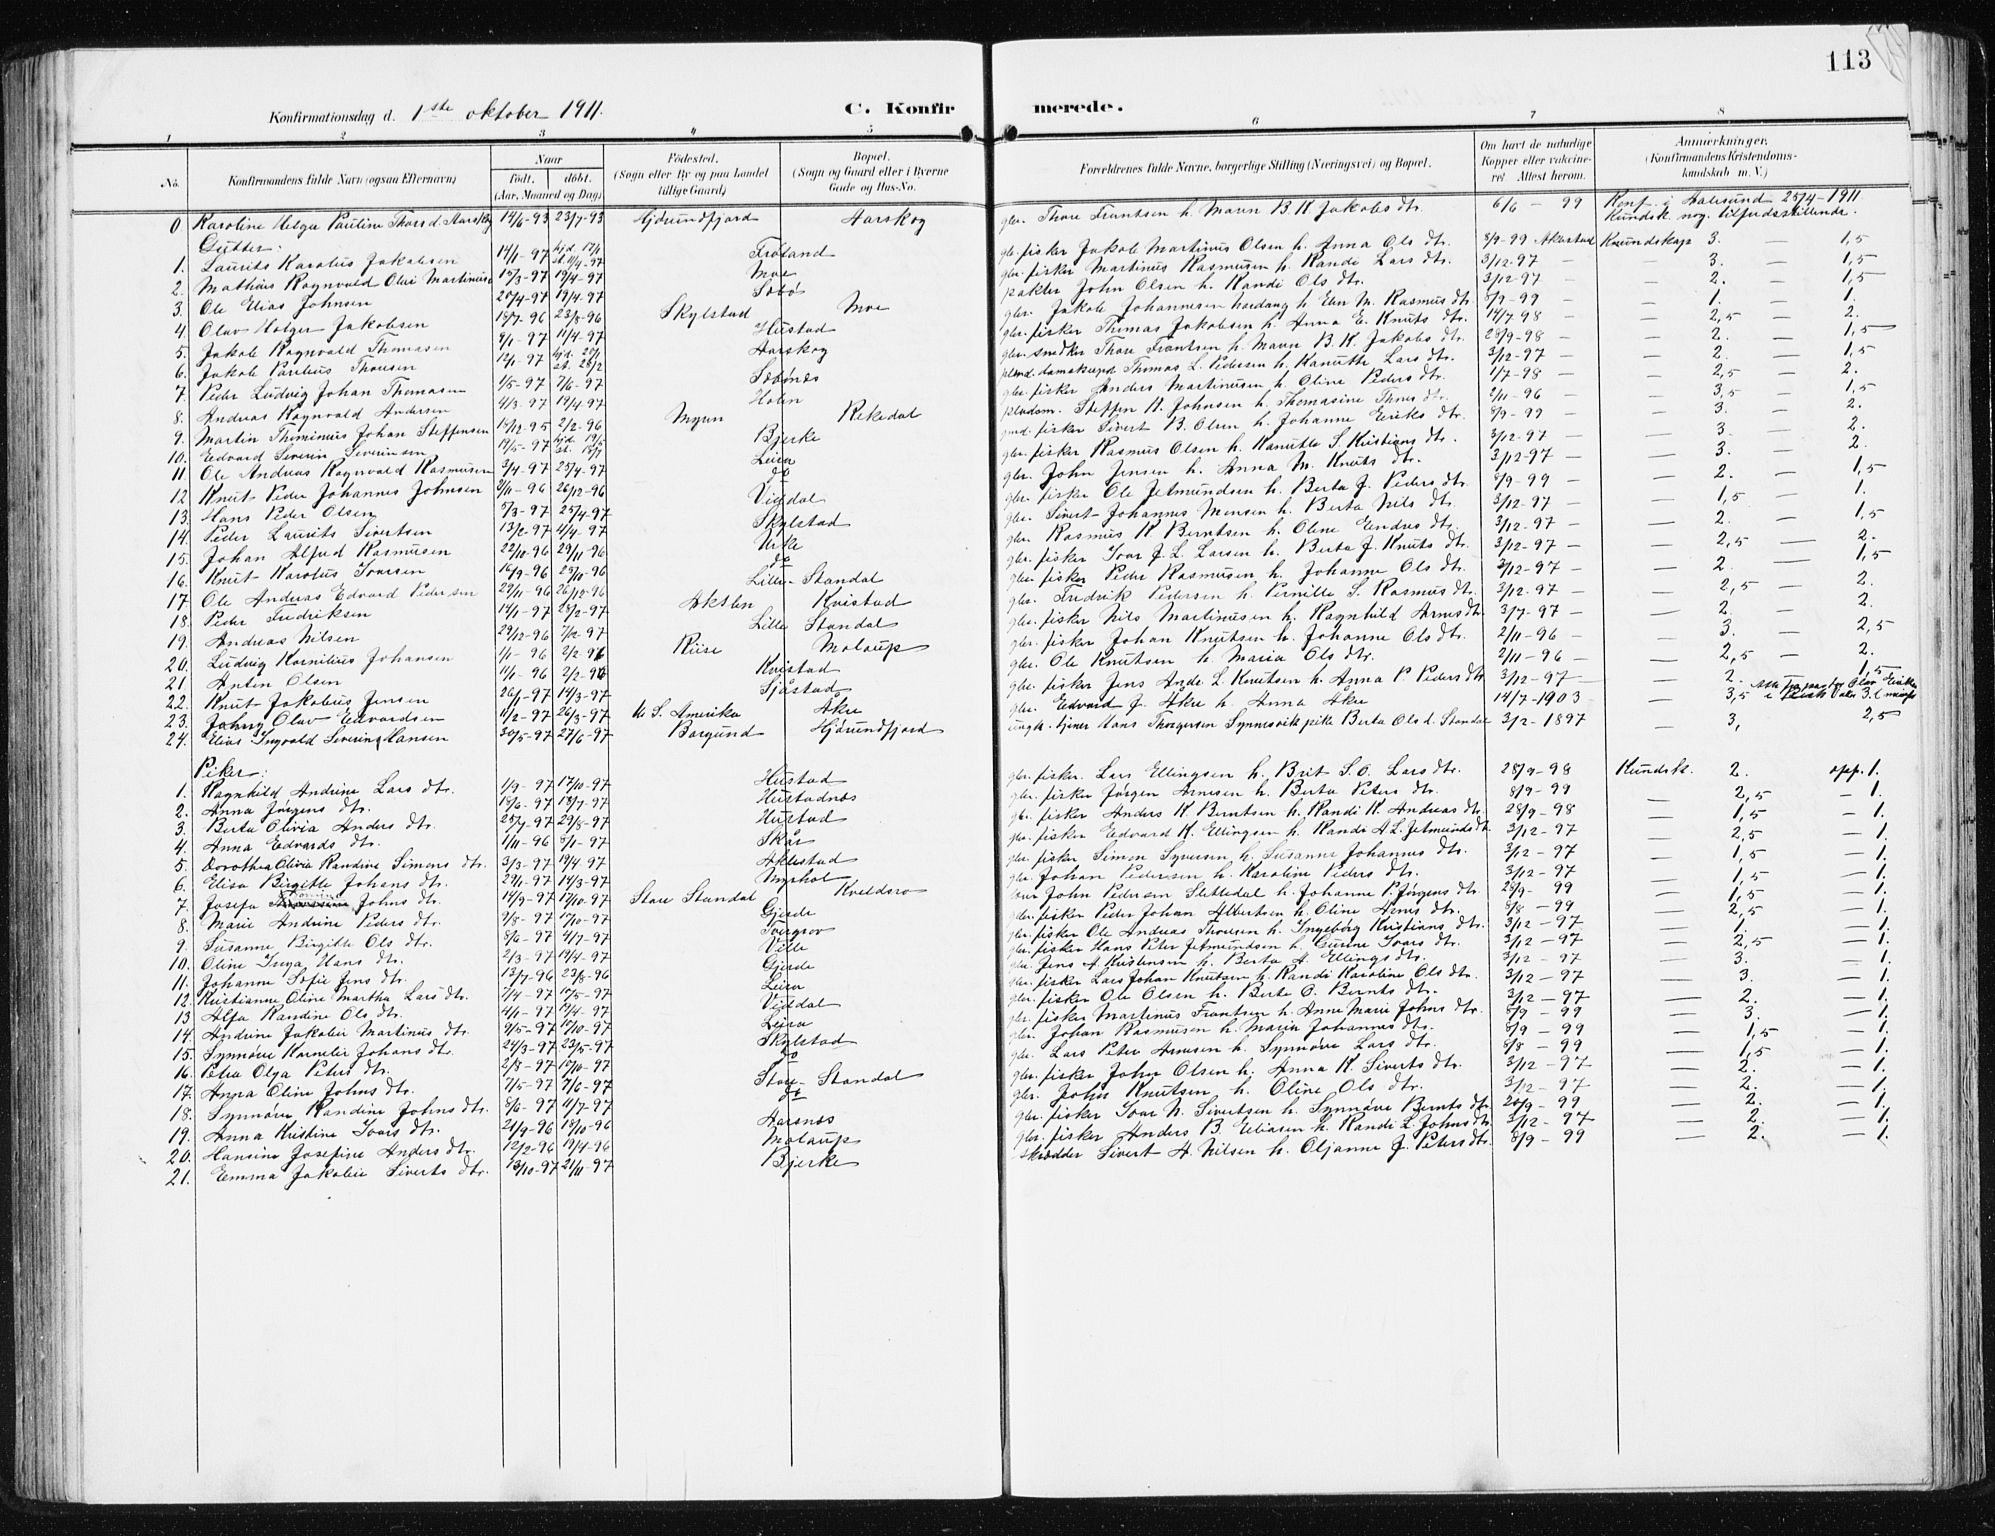 113
Konfirmationsdag d. 1ste oktober 1911. C. Konfirmerede.
1 2 3 4 5 6 7 8
No. Konfirmandens fulde Navn (ogsaa Efternavn) Naar født, døbt. (Aar, Maaned og Dag) Fødested. (Sogn eller By og paa Landet tillige Gaard) Bopæl. (Sogn og Gaard eller i Byerne Gade og Hus-No. Forældrenes fulde Navne, borgerlige Stilling (Næringsvei) og Bopæl. Om havt de naturlige Kopper eller vakcineret. Attest herom. Anmærkninger. (Konfirmandens Kristendomskundskab m. V.)
0 Karoline Helga Pauline Thorsd. Aarskog 14/6-93 23/7-93 Hjørundfjord Aarskog gbr. Thore Frantsen h. Maren B. K. Jakobs dtr. 6/6 - 99 Konf. i Aalesund 25/4-1911 Kundsk. nog. tilfredsstillende.
Gutter:
1. Laurits Karolus Jakobsen 14/1-97 hjd. 17/1 st. 11/4-97 Frøland gbr. fisker Jakob Martinus Olsen h. Anna Ols dtr. 8/9-99 Akerstad Kundskap 3. — 1,5
2. Mathias Ragnvald Oluf Martinusen 15/3-97 19/4-97 Moe gbr. fisker Martinus Rasmusen h. Randi Lars dtr. 3/12-97 — 3. — 1,5
3. Ole Elias Johnsen 20/4-97 19/4-97 Sæbø pakter John Olsen h. Randi Ols dtr. 3/12-97 — 2. — 1,5
4. Olav Holger Jakobsen 18/7-96 23/8-96 Skylstad Moe gbr. Jakob Johannesen Nordang h. Elen M. Rasmus dtr. 8/9-99 — 1. — 1.
5. Jakob Ragnvald Thomasen 9/1-97 11/4-97 Hustad gbr. fisker Thomas Jakobsen h. Anna E. Knuts dtr. 14/7-98 — 2,5 — 2.
6. Jakob Paulus Thoresen 12/1-97 hjd. 20/1 st. 28/2 Aarskog gbr. snedker Thore Frantsen h. Maren B. K. Jakobs dtr. 28/9-98 — 2. — 1,5
7. Peder Ludvig Johan Thomasen 1/5-97 7/6-97 Sæbønes Thomas L. Pedersen h. Kanutte Lars dtr. 3/12-97 — 2. — 1,5
8. Andreas Ragnvald Andersen 4/3-97 19/4-97 Holen gbr. fisker Anders Martinusen h. Oline Peders dtr. 1/7-98 — 2,5 — 2.
9. Martin Johan Steffensen 14/12-95 2/2-96 Myren Rekedal Steffen K. Johnsen h. Thomasine dtr. 2/11-96 — 3,5 — 1,5
10. Edvard Severin Severinsen 19/5-97 Bjerke fisker Sivert B. Olsen h. Johanne Eriks dtr. 8/9-99 — 3. — 2.
11. Ole Andreas Ragnvald Rasmusen 3/4-97 25/4-97 Leira gbr. fisker Rasmus Olsen h. Kanutte S. Kristians dtr. 3/12-97 — 3. — 2.
12 Knut Peder Johannes Johnsen 3/11-96 26/12-96 do gbr. John Jensen h. Anna M. Knuts dtr. 3/12-97 — 3. — 2.
13. Hans Peder Olsen 5/3-97 25/4-97 Viddal gbr. fisker Ole Jetmundsen h. Berta J. Peders dtr. 8/9-99 — 2. — 1,5
14. Peder Laurits Sivertsen 13/2-97 4/4-97 Skylstad gbr. Sivert Johannes Monsen h. Berta Nils dtr. 3/12-97 — 1,5 — 1.
15. Johan Alfred Rasmusen 22/10-96 29/11-96 Urke gbr. Rasmus K. Berntsen h. Oline Endres dtr. 3/12-97 — 2. — 1,5
16. Knut Karolus Ivarsen 16/9-96 25/10-96 do gbr. fisker Ivar J. L. Larsen h. Berta J. Knuts dtr. 3/12-97 — 2,5 — 2.
17. Ole Andreas Edvard Pedersen 29/11-96 26/12-96 Lille-Standal gbr. fisker Peder Rasmusen h. Johanne Ols dtr. 3/12-97 — 2. — 1,5
18. Peder Fredriksen 14/11-97 28/2-97 Akslen Kvistad gbr. Fredrik Pedersen h. Pernille S. Rasmus dtr. 3/12-97 — 2,5 — 2.
19. Andreas Nilsen 29/12-96 7/2-97 Lille Standal gbr. fisker Nils Martinusen h. Ragnhild Arnes dtr. 3/7-97 — 2. — 2.
20. Ludvig Kornelius Johansen 1/1-96 2/2-96 Riise Molaup gbr. fisker Johan Knutsen h. Johanne Ols dtr. 2/11-96 — 3. — 2,5
21. Anten Olsen 11/1-96 2/2-96 Kvistad gbr. Ole Knutsen h. Maria Ols dtr. 2/11-96 — 2,5 — 2.
22. Knut Jakobus Jensen 26/1-97 14/3-97 Sjåstad gbr. fisker Jens Ande L. Knutsen h. Anna P. Peders dtr. 3/12-97 — 2. 1,5
23. Johny Olav Edvardsen 11/2-97 26/3-97 U. S. Amerika Åkre gbr. Edvard J. Åkre h. Anna Åkre 14/7-1903 — 3,5
24. Elias Ingvald Severin Hansen 30/5-97 27/6-97 Borgund Hjørundfjord ungk. tjener Hans Thorgersen Synnesvik pike Berta Ols d. Standal 3/12-1897 — 3, 2,5
Piker:
1. Ragnhild Andrine Lars dtr. 1/9-97 17/10-97 Hustad gbr. fisker. Lars Ellingsen h. Brit S. O. Lars dtr. 28/9-98 Kundsk. 2. opp. 1.
2. Anna Jørgens dtr. 18/6-97 18/7-97 Hustadnes gbr. fisker Jørgen Arnesen h. Berta Peters dtr. 8/9-99 — 2,5 — 1.
3. Berta Olivia Anders dtr. 25/7-97 29/8-97 Hustad gbr. fisker Anders K. Berntsen h. Randi K. Andreas dtr. 28/9-98 — 1,5 — 1.
4. Anna Edvards dtr. 1/11-96 8/1-97 Skår gbr. fisker Edvard K. Ellingsen h. Randi A. L. Jetmunds dtr. 3/12-97 — 2,5 — 1.
5. Dorothea Olivia Randine Simons dtr. 3/3-97 19/4-97 Aklestad gbr. fisker Simon Syversen h. Susanne Johannes dtr. 3/12-97 — 1,5 — 1.
6. Elisa Birgitte Johans dtr. 29/1-97 14/3-97 Myrhol gbr. Johan Pedersen h. Karoline Peders dtr. 3/12-97 — 1,5 — 1.
7. Josefa Johns dtr. 14/9-97 17/10-97 Store Standal Kveldsro John Pedersen Slettedal h. Johanne P. Jørgens dtr. 28/9-99 — 1,5 — 1.
8. Marie Andrine Peders dtr. 9/8-97 17/10-97 Gjerde gbr. fisker Peder Johan Albertsen h. Oline Arnes dtr. 8/8-99 — 2,5 — 1.
9. Susanne Birgitte Ols dtr. 8/6-97 4/7-97 gbr. fisker Ole Andreas Thoresen h. Ingeborg Kristians dtr. 3/12-97 — 1. — 1.
10. Oline Inga Hans dtr. 2/3-97 19/4-97 Velle gbr. fisker Hans Peter Jetmundsen h. Gurine Ivars dtr. 3/12-97 — 2,5 — 1.
11. Johanne Sofie Jens dtr. 13/7-96 23/8-96 Gjerde gbr. Jens A. Kristensen h. Berta A. Ellings dtr. 3/12-97 — 3. — 1.
12. Kristianne Oline Martha Lars dtr. 7/4-97 17/5-97 Leira gbr. fisker Lars Johan Knutsen h. Randi Karoline Ols dtr. 3/12-97 — 3. — 1.
13 Alfa Randine Ols dtr. 4/1-97 19/4-97 Viddal gbr. fisker Ole Olsen h. Berte O. Bernts dtr. 3/12-97 — 2. — 1.
14. Andrine Jakobie Martinus dtr. 9/5-97 17/10-97 Leira gbr. fisker Martinus Frantsen h. Anne Marie Johns dtr. 8/9-99 — 3. — 1.
15. Synnøve Kornelie Johans dtr. 24/3-97 23/5-97 Skylstad gbr. Johan Rasmusen h. Maria Johannes dtr. 8/9-99 — 1,5 — 1.
16. Petra Olga Peters dtr. 2/8-97 17/10-97 do gbr. Lars Peter Arnesen h. Synnøve Lars dtr. 8/8-99 — 1,5 — 1.
17. Anna Oline Johns dtr. 7/5-97 7/6-97 Store-Standal gbr. fisker John Olsen h. Anna K. Siverts dtr. 3/12-97 — 2. — 1.
18. Synnøve Randine Johns dtr. 8/6-97 4/7-97 do gbr. John Knutsen h. Oline Ols dtr. 3/12-97 — 2. — 1.
19. Anna Kristine Ivars dtr. 21/9-96 18/10-96 Aarsnes gbr. fisker Ivar N. Sivertsen h. Synnøve Bernts dtr. 20/9-99 — 2. — 1.
20. Hansine Josefine Anders dtr. 12/2-96 19/4-96 Molaup gbr. fisker Anders B. Eliasen h. Randi L. Johns dtr. 3/12-97 — 2. — 1.
21. Emma Jakobie Siverts dtr. 13/10-97 21/11-97 Bjerke skrædder Sivert A. Nilsen h. Oljanne J. Peters dtr. 8/9-99 — 2. — 1.